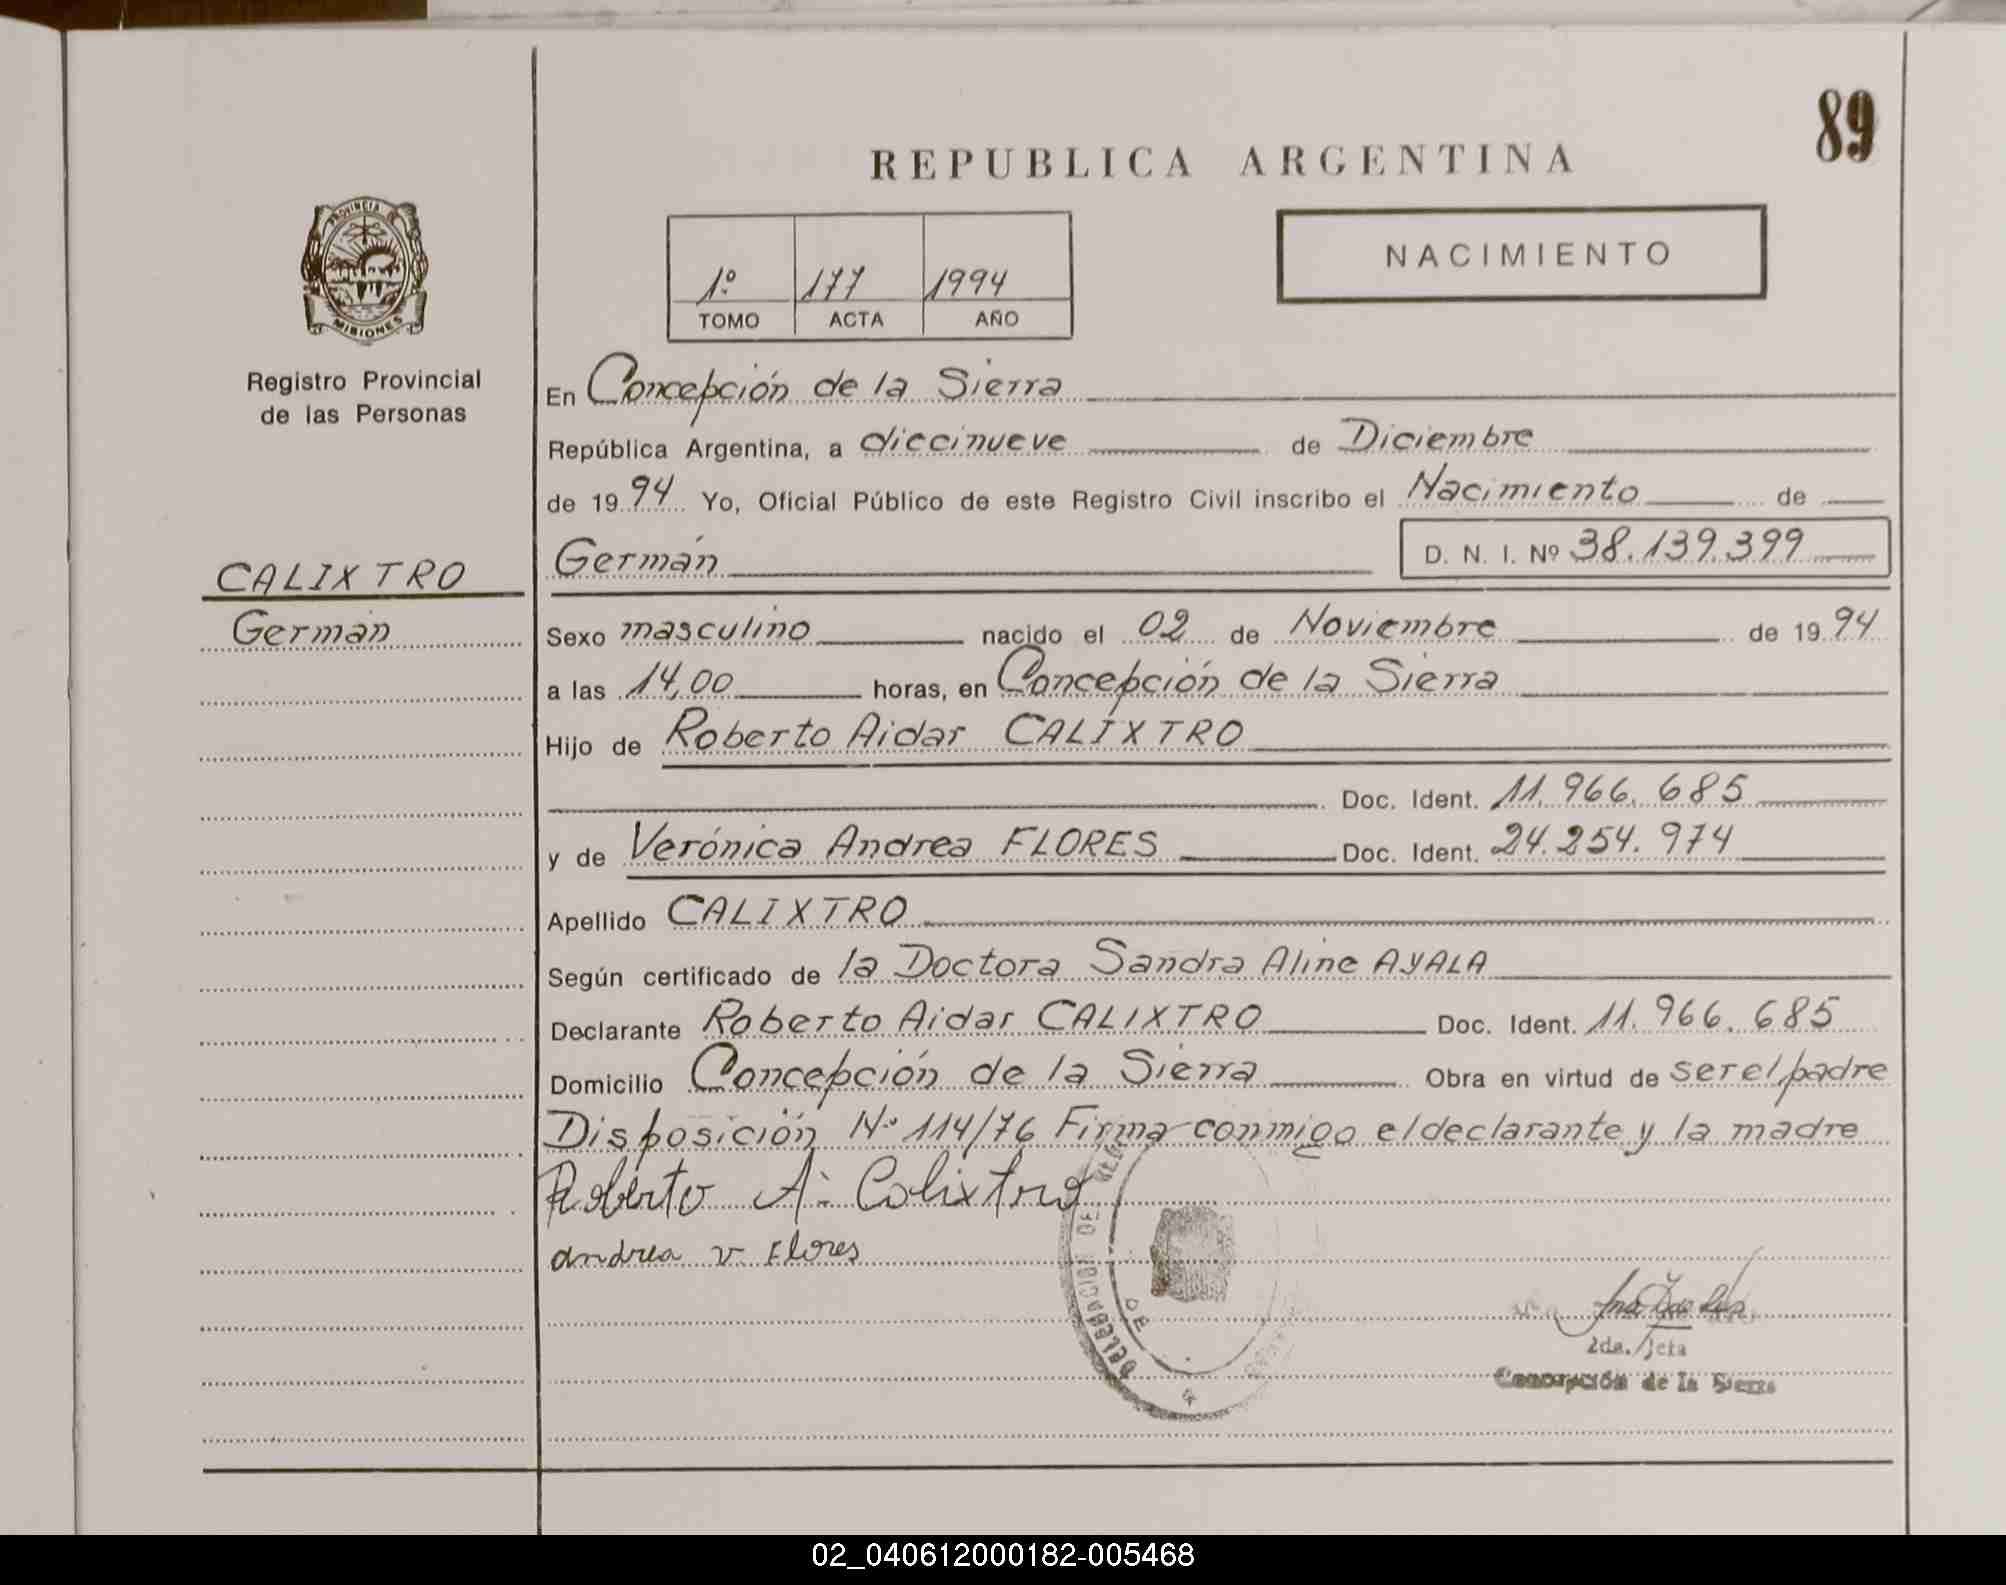 89
REPUBLICA ARGENTINA
PROVINCIA DE
MISIONES
Registro Provincial
de las Personas
1º 177 1994
TOMO ACTA AÑO
NACIMIENTO
En Concepción de la Sierra
República Argentina, a diecinueve de Diciembre
de 1994 Yo, Oficial Público de este Registro Civil inscribo el Nacimiento de
CALIXTRO
Germán
Germán D. N. I. Nº 38.139.399
Sexo masculino nacido el 02 de Noviembre de 1994
a las 14,00 horas, en Concepción de la Sierra
Hijo de Roberto Aidar CALIXTRO
Doc. Ident. 11.966.685
y de Verónica Andrea FLORES Doc. Ident. 24.254.974
Apellido CALIXTRO
Según certificado de la Doctora Sandra Aline AYALA
Declarante Roberto Aidar CALIXTRO Doc. Ident. 11.966.685
Domicilio Concepción de la Sierra Obra en virtud de ser el padre
Disposición Nº 114/76 Firma conmigo el declarante y la madre
Roberto A. Calixtro
andrea v Flores
DELEGACION DE
DE
2da. Jefa
Concepción de la Sierra
02_040612000182-005468